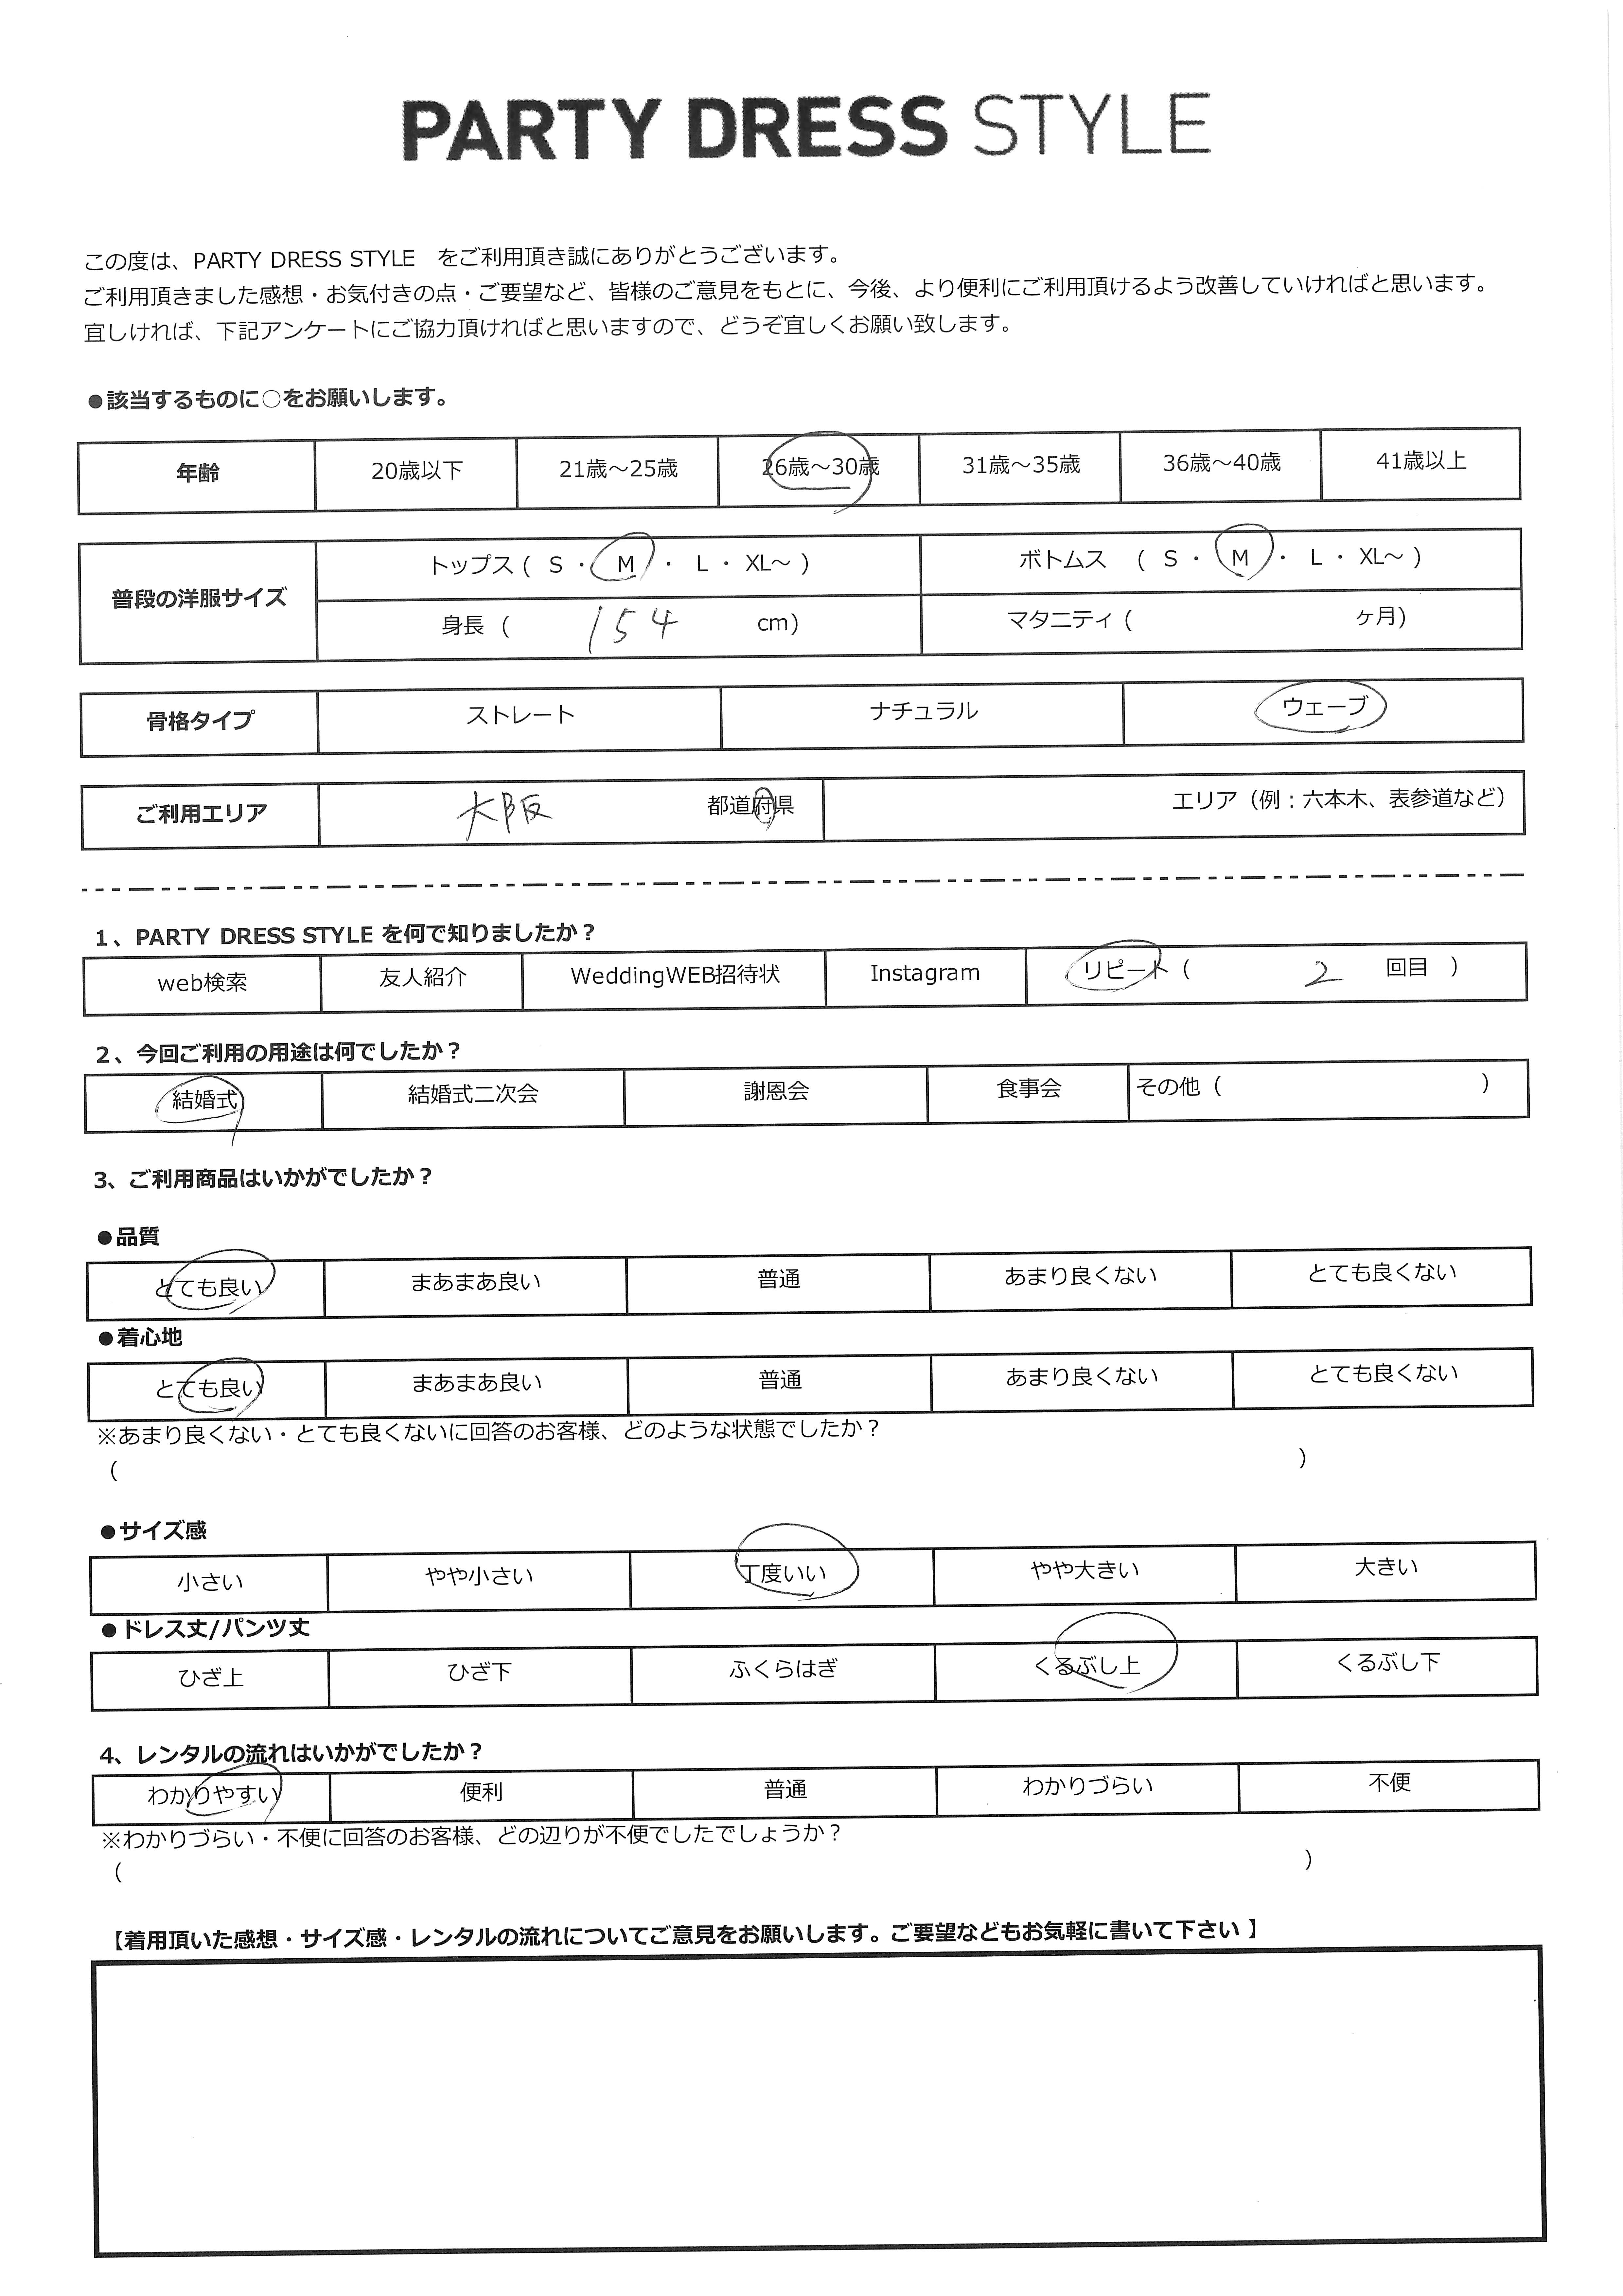 PARTY DRESS STYLE
この度は、PARTY DRESS STYLE　をご利用頂き誠にありがとうございます。
ご利用頂きました感想・お気付きの点・ご要望など、皆様のご意見をもとに、今後、より便利にご利用頂けるよう改善していければと思います。
宜しければ、下記アンケートにご協力頂ければと思いますので、どうぞ宜しくお願い致します。
●該当するものに○をお願いします。
年齢 20歳以下 21歳～25歳 26歳～30歳 31歳～35歳 36歳～40歳 41歳以上
普段の洋服サイズ
トップス ( S ・ M ・ L ・ XL～ ) ボトムス ( S ・ M ・ L ・ XL～ )
身長 ( 154 cm) マタニティ ( ヶ月)
骨格タイプ ストレート ナチュラル ウェーブ
ご利用エリア 大阪 都道府県 エリア（例：六本木、表参道など）
1、PARTY DRESS STYLE を何で知りましたか？
web検索 友人紹介 WeddingWEB招待状 Instagram リピート ( 2 回目 )
2、今回ご利用の用途は何でしたか？
結婚式 結婚式二次会 謝恩会 食事会 その他 ( )
3、ご利用商品はいかがでしたか？
●品質
とても良い まあまあ良い 普通 あまり良くない とても良くない
●着心地
とても良い まあまあ良い 普通 あまり良くない とても良くない
※あまり良くない・とても良くないに回答のお客様、どのような状態でしたか？
( )
●サイズ感
小さい やや小さい 丁度いい やや大きい 大きい
●ドレス丈/パンツ丈
ひざ上 ひざ下 ふくらはぎ くるぶし上 くるぶし下
4、レンタルの流れはいかがでしたか？
わかりやすい 便利 普通 わかりづらい 不便
※わかりづらい・不便に回答のお客様、どの辺りが不便でしたでしょうか？
( )
【着用頂いた感想・サイズ感・レンタルの流れについてご意見をお願いします。ご要望などもお気軽に書いて下さい 】